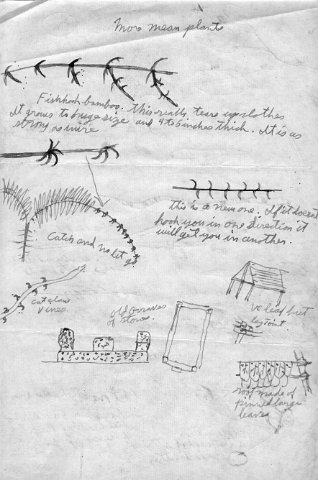 More mean plants
Fishhook bamboo. This really tears up clothes
It grows to huge size and 4 to 5 inches thick. It is as
strong as wire
this is a new one. If it doesnt
hook you in one direction it
will get you in another.
Catch and no let go
cat claw
vines
old graves
of stones.
joint
roof made of
pinned large
leaves